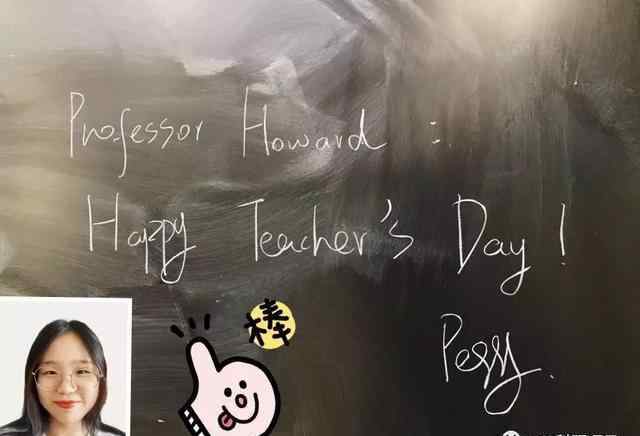 Professor Howard :
Happy Teacher's Day !
棒
Peggy.